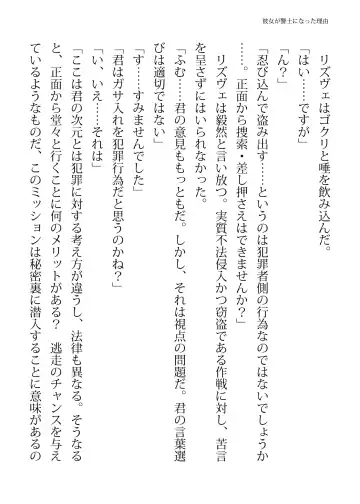 彼女が警士になった理由
　リズヴェはゴクリと唾を飲み込んだ。
「はい……ですが」
「ん？」
「忍び込んで盗み出す……というのは犯罪者側の行為なのではないでしょうか
……。正面から捜索・差し押さえはできませんか？」
　リズヴェは毅然と言い放つ。実質不法侵入かつ窃盗である作戦に対し、苦言
を呈さずにはいられなかった。
「ふむ……君の意見ももっともだ。しかし、それは視点の問題だ。君の言葉選
びは適切ではない」
「す……すみませんでした」
「君はガサ入れを犯罪行為だと思うのかね？」
「い、いえ……それは」
「ここは君の次元とは犯罪に対する考え方が違うし、法律も異なる。そうなる
と、正面から堂々と行くことに何のメリットがある？　逃走のチャンスを与え
ているようなものだ、このミッションは秘密裏に潜入することに意味があるの